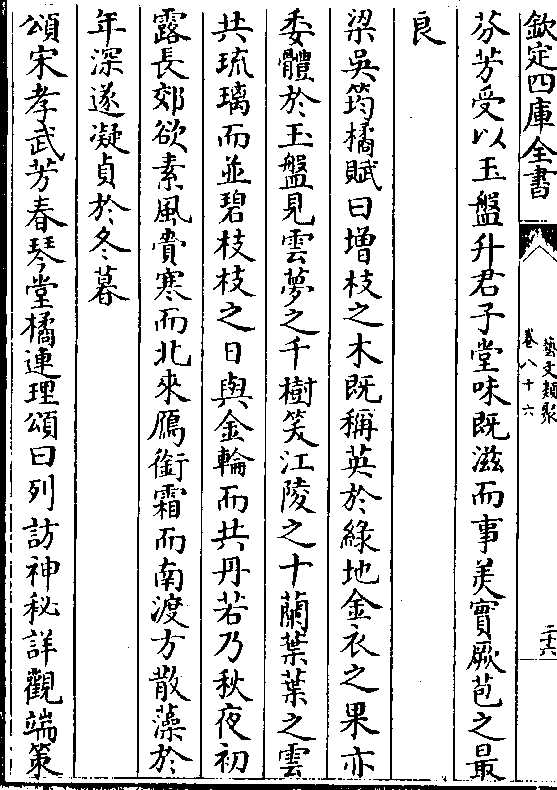 欽定四庫全書
藝文類聚
卷八十六
二十六
芬芳受以玉盤升君子堂味既滋而事美實厥苞之最
良
梁吳筠橘賦曰增枝之木既稱英於綠地金衣之果亦
委體於玉盤見雲夢之千樹笑江陵之十蘭葉葉之雲
共琉璃而並碧枝枝之日與金輪而共丹若乃秋夜初
露長郊欲素風賫寒而北來鴈銜霜而南渡方散藻於
年深遂凝貞於冬暮
頌宋孝武芳春琴堂橘連理頌曰列訪神秘詳觀端策